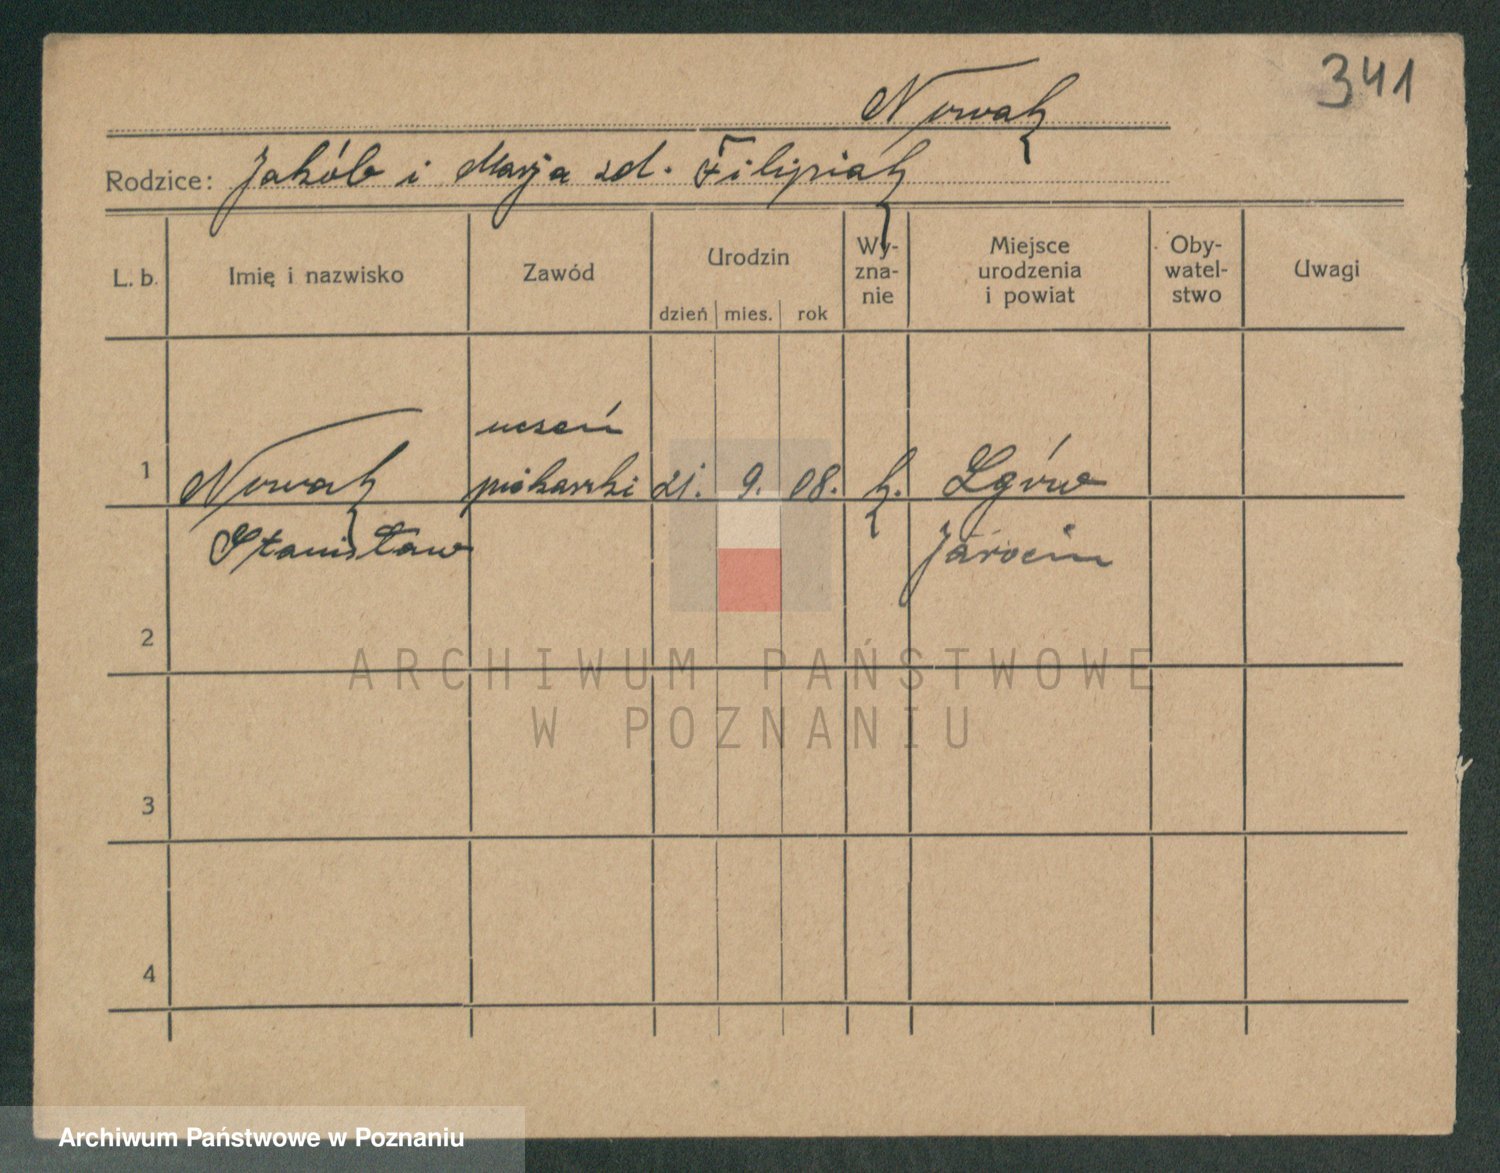 341
Nowak
Rodzice: Jakób i Marja zd. Filipiak
L. b. Imię i nazwisko Zawód Urodzin Wy-zna-nie Miejsce urodzenia i powiat Oby-watel-stwo Uwagi
dzień mies. rok
uczeń
1 Nowak piekarski 21. 9. 08. k. Lgów
Stanisław Jarocin
2
ARCHIWUM PAŃSTWOWE
W POZNANIU
3
4
Archiwum Państwowe w Poznaniu